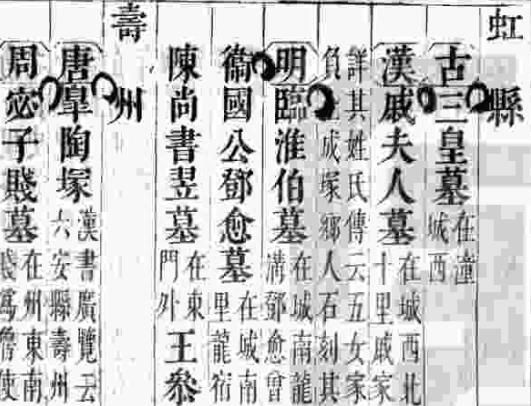 虹縣
古三皇墓在潼城西
漢戚夫人墓在城西北十里戚家
詳其姓氏傳云五女家負成塚鄉人石刻其
明臨淮伯墓在城南龍溝鄧愈曾
衞國公鄧愈墓在城南里龍宿
陳尚書昱墓在東門外王叅
壽州
唐臯陶塚漢書廣覽云六安縣壽州
周宓子賤墓在州東南賤爲使